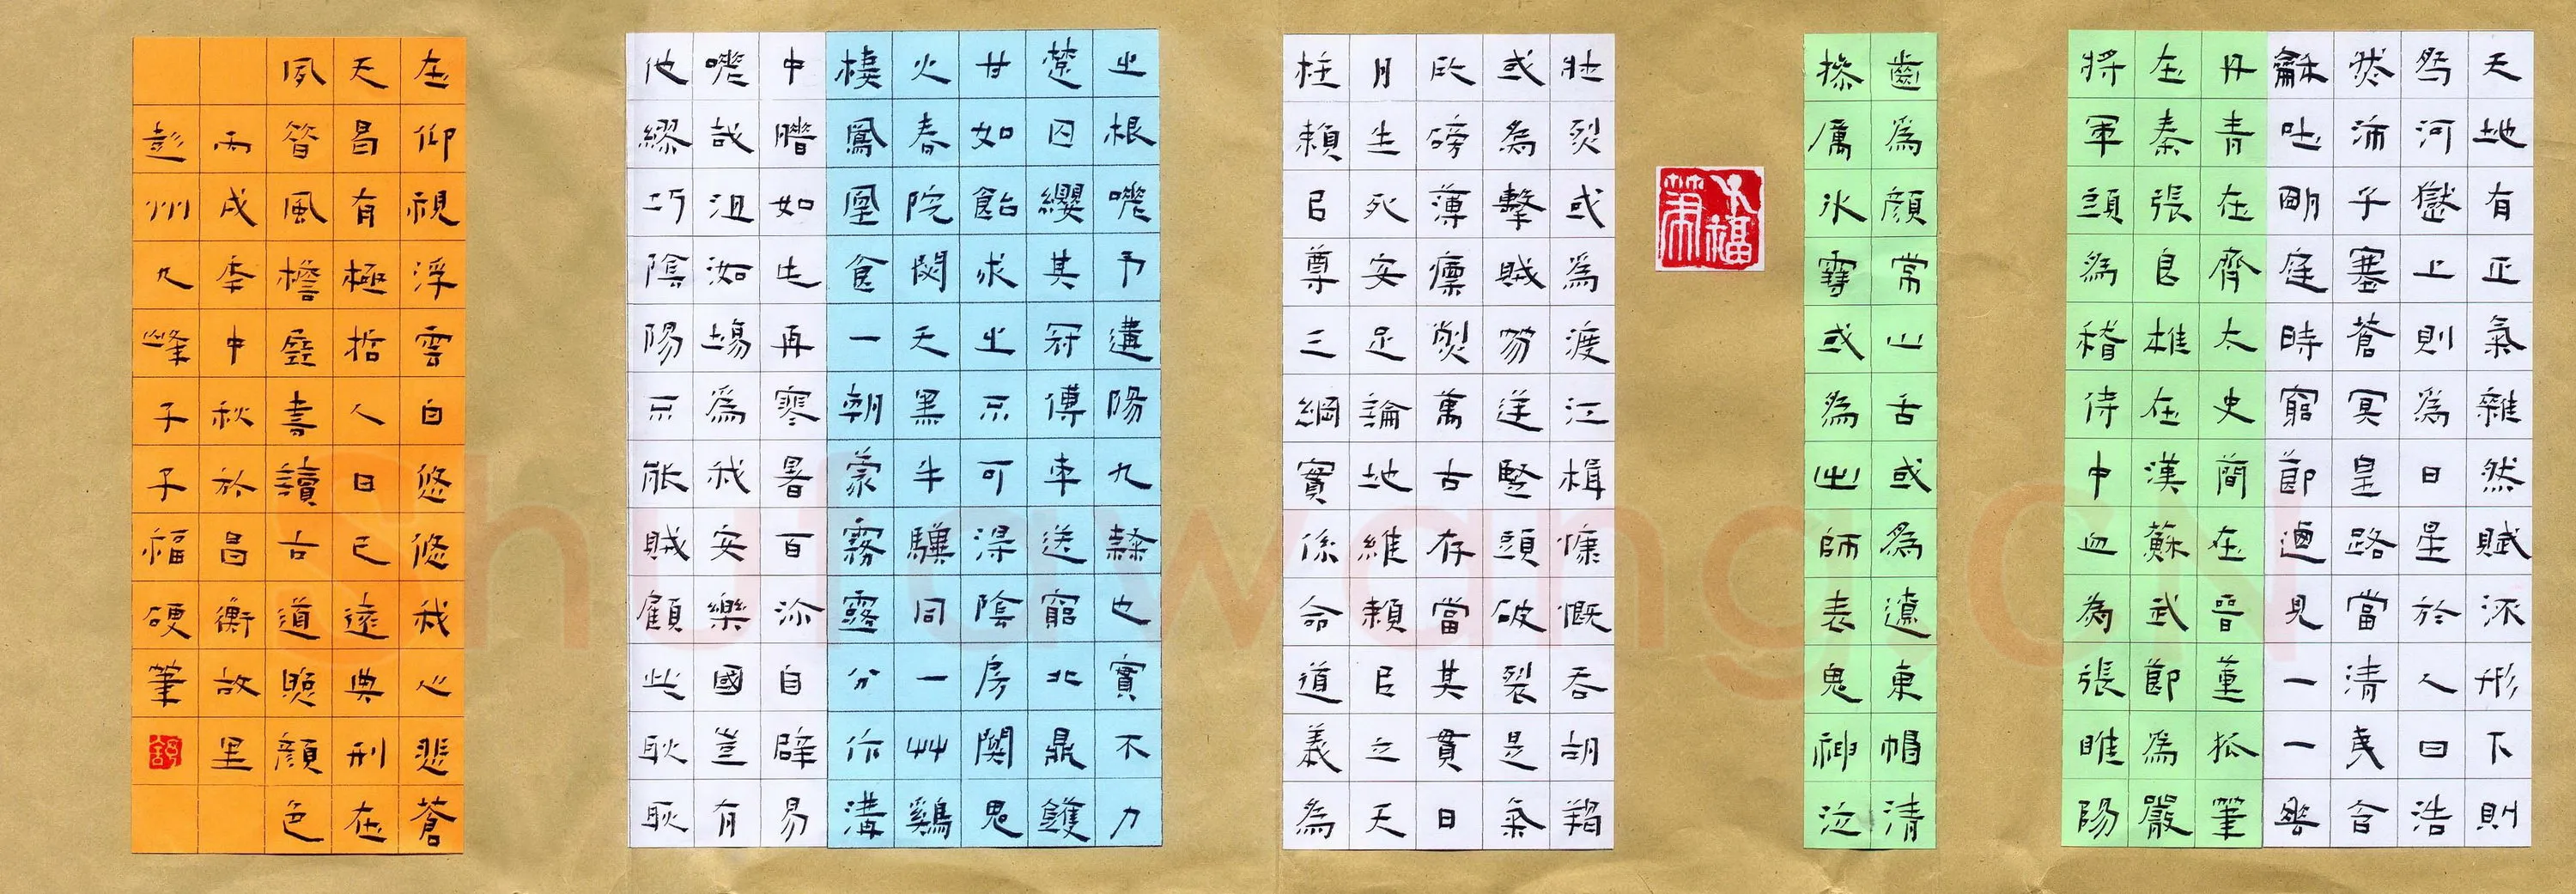 天地有正氣雜然賦流形下則
為河嶽上則為日星於人曰浩
然沛乎塞蒼冥皇路當清夷含
龢吐朙庭時窮節迺見一一垂
丹青在齊太史簡在晉董狐筆
在秦張良椎在漢蘇武節為嚴
將軍頭為嵇侍中血為張睢陽
齒為顏常山舌或為遼東帽清
操厲冰雪或為出師表鬼神泣
壯烈或為渡江楫慷慨吞胡羯
或為擊賊笏逆豎頭破裂是氣
所磅礴凜烈萬古存當其貫日
月生死安足論地維賴以立天
柱賴以尊三綱實係命道義為
之根嗟予遘陽九隸也實不力
楚囚纓其冠傳車送窮北鼎鑊
甘如飴求之不可得陰房闃鬼
火春院閟天黑牛驥同一皁雞
棲鳳凰食一朝蒙霧露分作溝
中瘠如此再寒暑百沴自辟易
嗟哉沮洳場為我安樂國豈有
他繆巧陰陽不能賊顧此耿耿
在仰視浮雲白悠悠我心悲蒼
天曷有極哲人日已遠典刑在
夙昔風檐展書讀古道照顏色
丙戌季中秋於昌衡故里
彭州九峰子子福硬筆
Shufawang.CN